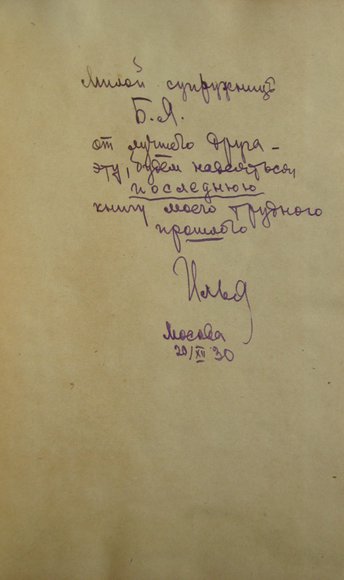 Милой супружнице
Б.Я.
от лучшего друга –
эту, будем надеяться
последнюю
книгу моего трудного
прошлого
Илья
Москва
29/XII 30